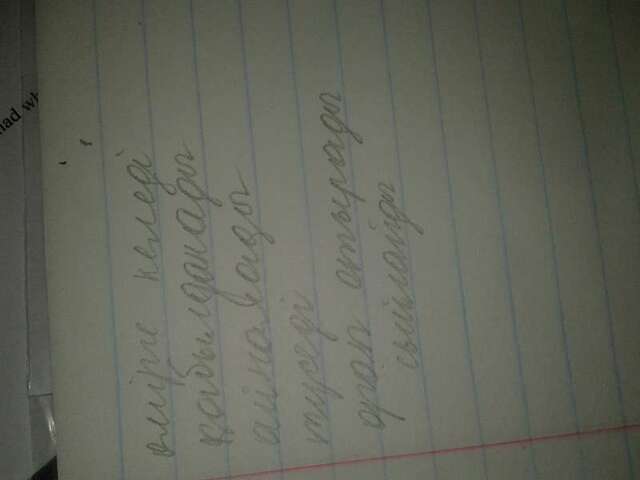 nad wh
өмірге келеді
қабылданады
айналады
түседі
орап отырады
сыйлайды